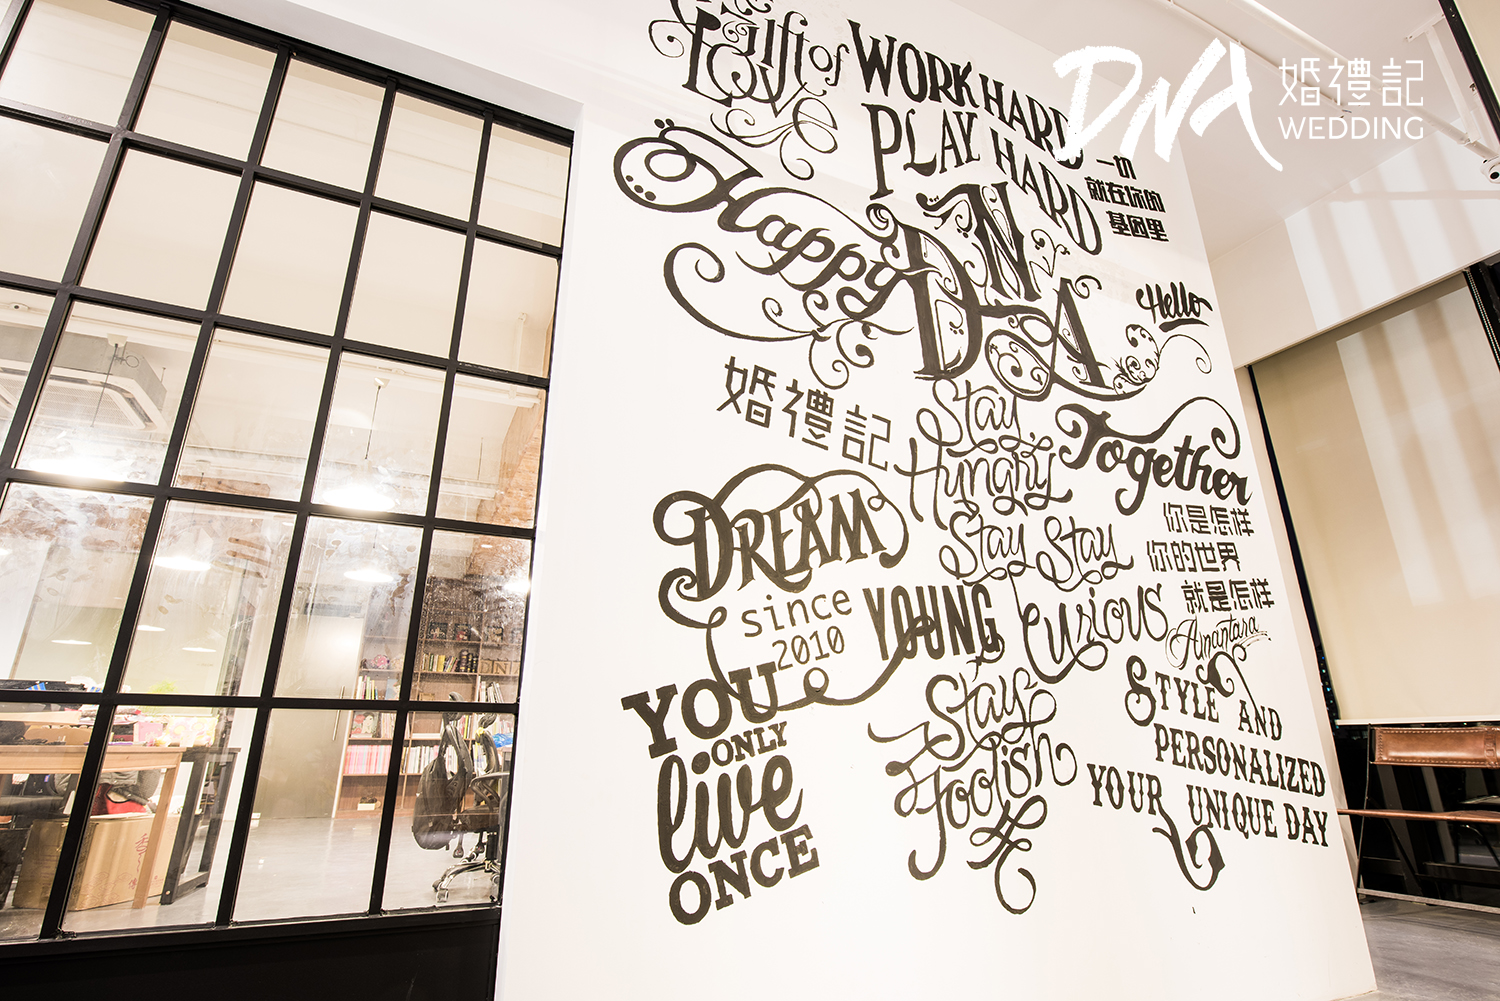 Gift of
Love
WORK HARD
PLAY HARD
DNA
婚禮記
WEDDING
一切
就在你的
基因里
Happy
DNA
Hello
婚禮記
Stay
Hungry
Together
DREAM
Stay Stay
你是怎样
你的世界
就是怎样
since
2010
YOUNG
Curious
Amantara
YOU
ONLY
live
ONCE
Stay
Foolish
STYLE AND
PERSONALIZED
YOUR UNIQUE DAY